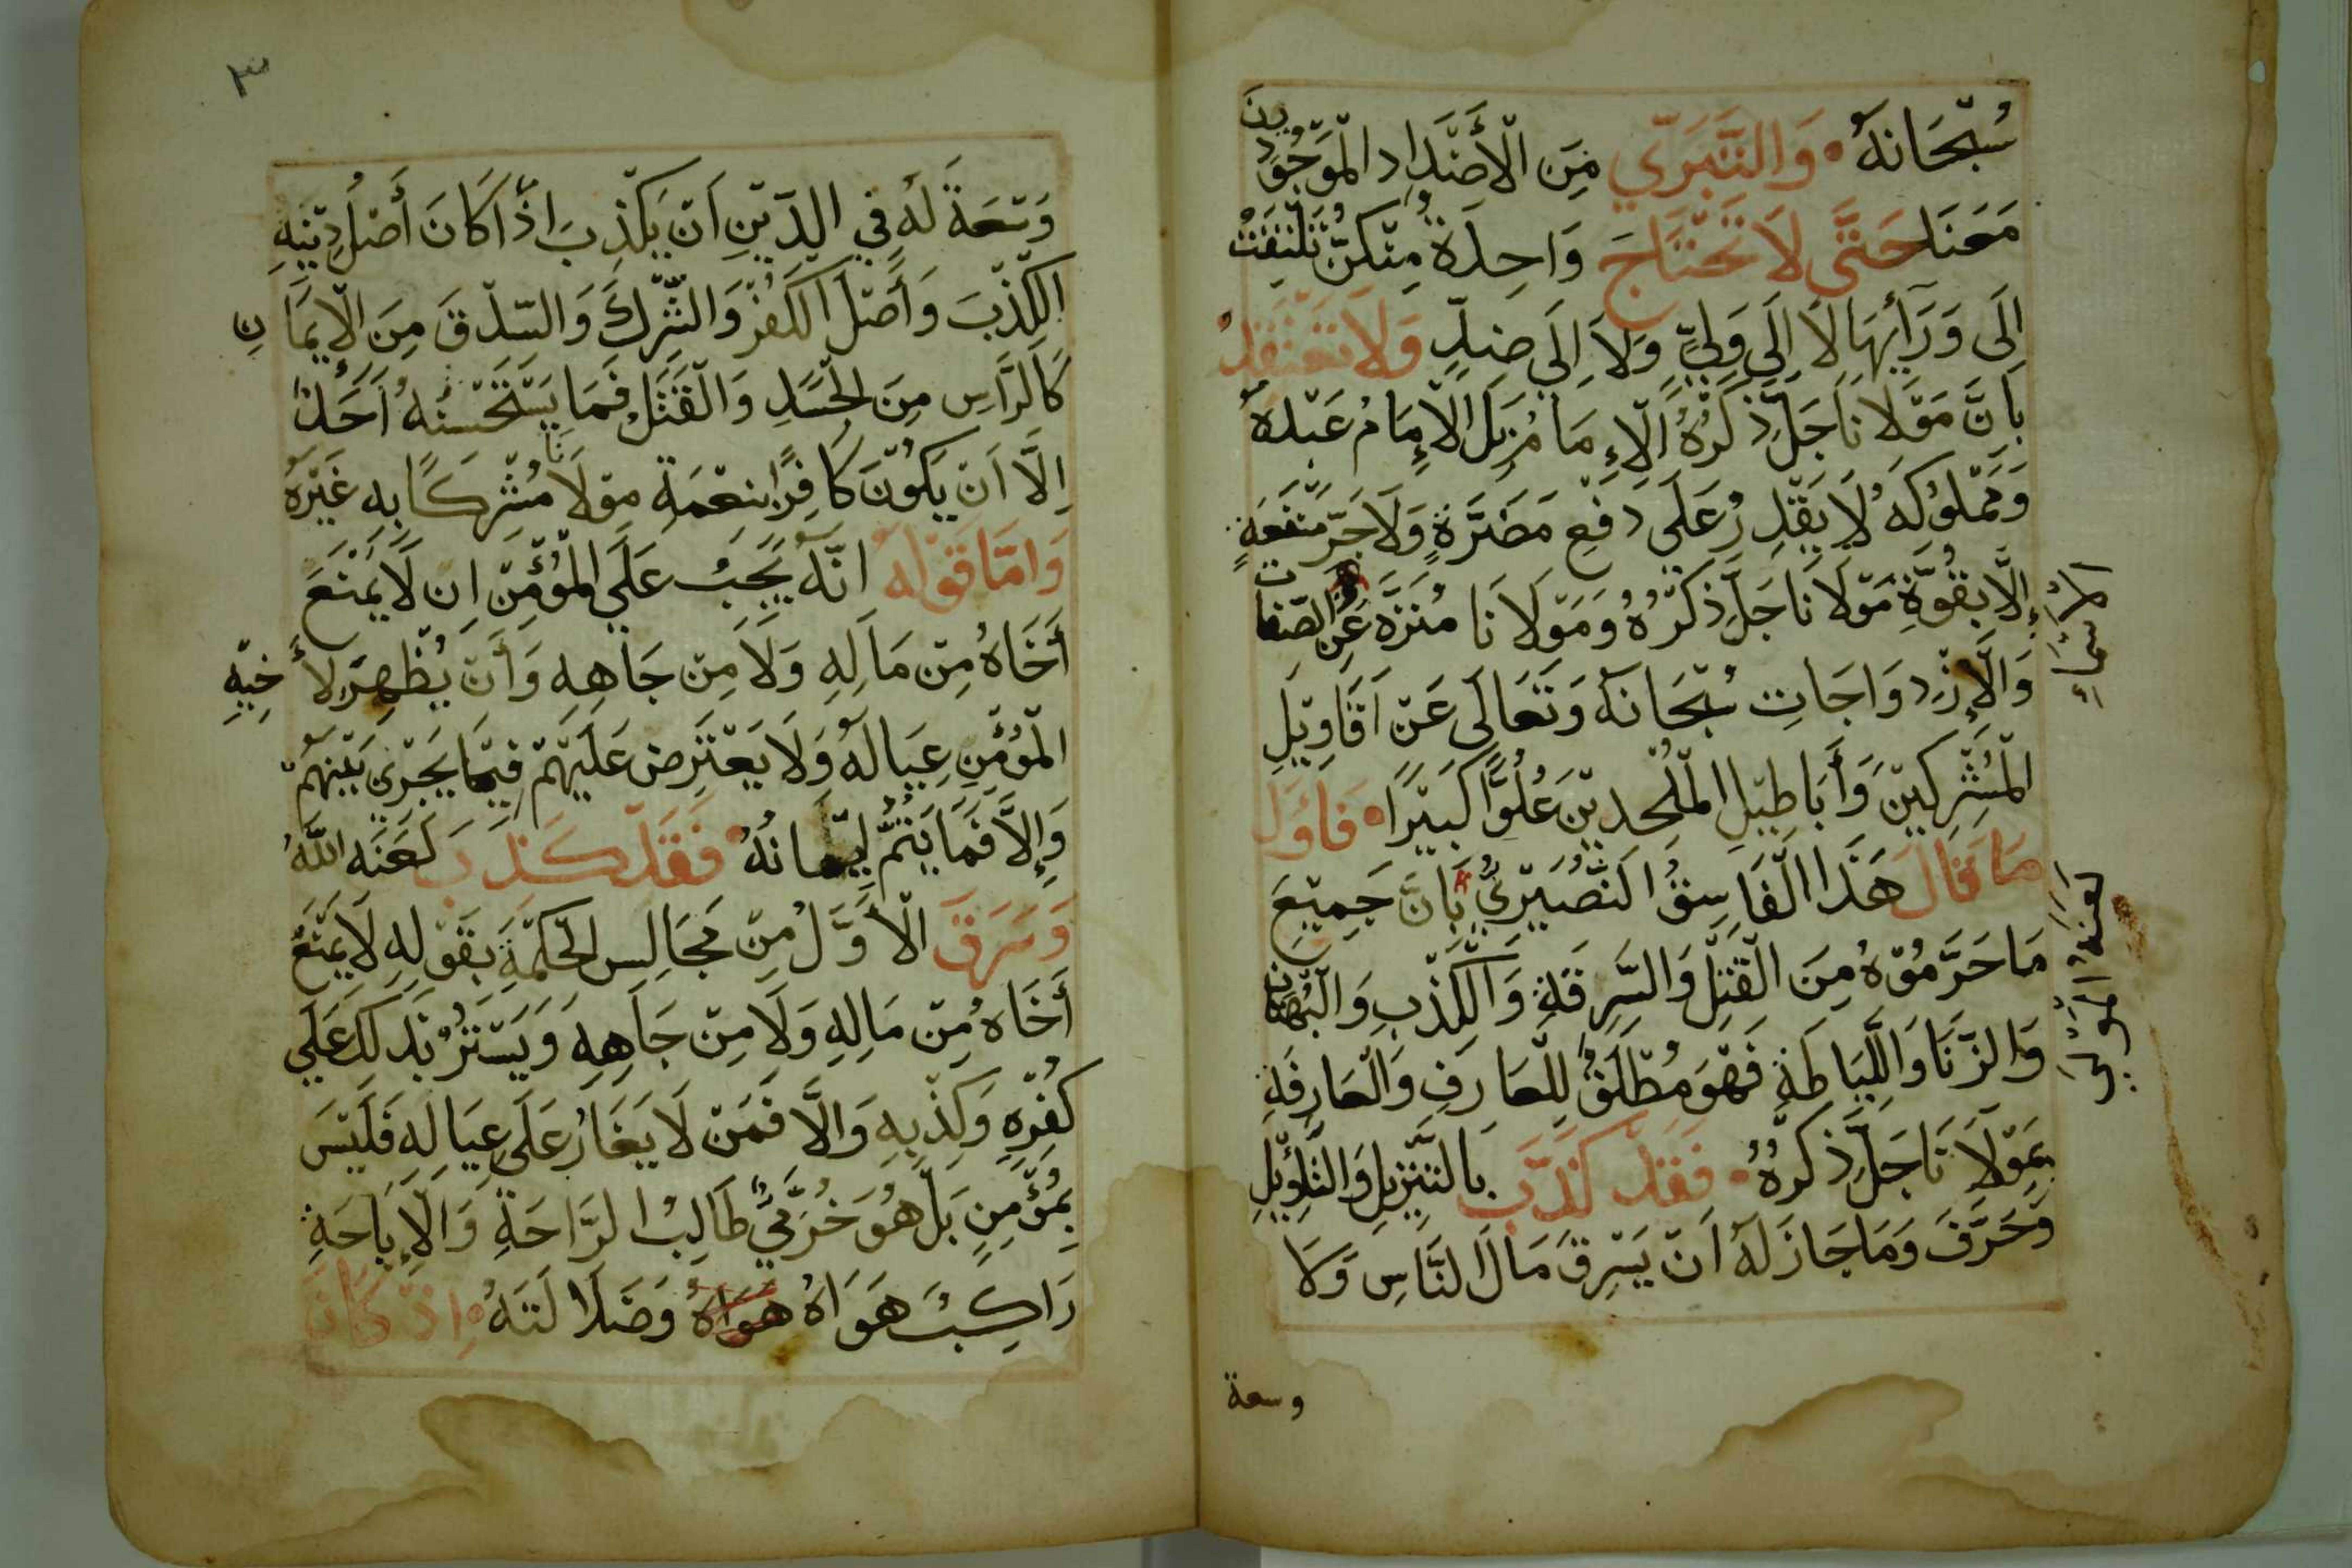 سُبْحَانَهُ ۰ وَالتَّبَرِّي مِنَ الْأَضْدَادِ الْمَوْجُودِينَ
مَعَنَا حَتَّى لَا تَحْتَاجَ وَاحِدَةٌ مِنْكُنّ تَلْتَفِتُ
إِلَى وَرَآئِهَا لَا إِلَى وَلِيٍّ وَلَا إِلَى ضِدٍّ وَلَا تَعْتَقِدُ
بِأَنَّ مَوْلَانَا جَلَّ ذِكْرُهُ الْإِمَامُ بَلِ الْإِمَامُ عَبْدُهُ
وَمَمْلُوكُهُ لَا يَقْدِرُ عَلَى دَفْعِ مَضَرَّةٍ وَلَا جَرّ مَنْفَعَةٍ
إِلَّا بِقُوَّةِ مَوْلَانَا جَلَّ ذِكْرُهُ وَمَوْلَانَا مُنَزَّهٌ عَنِ الصِّفَات
وَالْإِزْدِوَاجَاتِ سُبْحَانَهُ وَتَعَالَى عَنْ أَقَاوِيْلِ
الْمُشْرِكِيْنَ وَأَبَاطِيْلِ الْمُلْحِدِيْنَ عُلُوًّا كَبِيْرًا ۰ فَاوَل
مَا قَالَ هَذَا الْفَاسِقُ النُّصَيْرِيُّ بِأَنَّ جَمِيْعَ
مَا حَرَّمُوْهُ مِنَ الْقَتْلِ وَالسَّرِقَةِ وَالْكَذْبِ وَالْبُهْتَانِ
وَالزِّنَا وَاللِّيَاطَةِ فَهْوَ مُطْلَقٌ لِلْعَارِفِ وَالْعَارِفَةِ
بِمَوْلَانَا جَلَّ ذِكْرُهُ ۰ فَقَدْ كَذَبَ بِالتَّنْزِيْلِ وَالتَّأْوِيْلِ
وَحَرَّفَ وَمَا جَازَ لَهُ أَنْ يَسْرِقَ مَالَ النَّاسِ وَلَا
وسعة
الاسْمَاءِ
لَعَنَهُ الْمَوْلَى
٣
وَسْعَةَ لَهُ فِي الدِّيْنِ أَنْ يَكْذِبَ إِذْ كَانَ أَصْلُ دِيْنِهِ
الْكِذْبَ وَأَصْلَ الْكُفْرَ وَالشِّرْكَ وَالسِّدْقَ مِنَ الْإِيمَانِ
كَالرَّاسِ مِنَ الْجَسَدِ وَالْقَتْلُ فَمَا يَسْتَحْسِنُهُ أَحَدٌ
إِلَّا أَنْ يَكُوْنَ كَافِرًا بِنِعْمَةِ مَوْلَانَا مُشْرِكًا بِهِ غَيْرَهُ
وَامَّا قَوْلُهُ انَّهُ يَجِبُ عَلَى الْمُؤْمِنْ انْ لَا يَمْنَعَ
أَخَاهُ مِنْ مَالِهِ وَلَا مِنْ جَاهِهِ وَأَنْ يُظْهِرَ لأَخِيْهِ
الْمُؤْمِنِ عِيَالَهُ وَلَا يَعْتَرِضَ عَلَيْهِمْ فِيْمَا يَجْرِيْ بَيْنَهُمْ
وَإِلَّا فَمَا يَتِمُّ إِيْمَانُهُ ۰ فَقَدْ كَذَبَ لَعَنَه اللَّهُ
وَسَرَقَ الْأَوَّلَ مِنْ مَجَالِسِ الْحِكْمَةِ بِقَوْلِهِ لَا يَمْنَعْ
أَخَاهُ مِنْ مَالِهِ وَلَا مِنْ جَاهِهِ وَيَسْتَتِرُ بِذَلِكَ عَلَى
كُفْرِهِ وَكِذْبِهِ وَالَّا فَمَنْ لَا يَغَارُ عَلَى عِيَالِهِ فَلَيْسَ
بِمُؤْمِنٍ بَلْ هُوَ خُرَّمِيٌّ طَالِبُ الرَّاحَةِ وَالْإِبَاحَةِ
رَاكِبٌ هَوَاهُ هَوَاهُ وَضَلَالَتَهُ ۰ إِذْ كَانَ